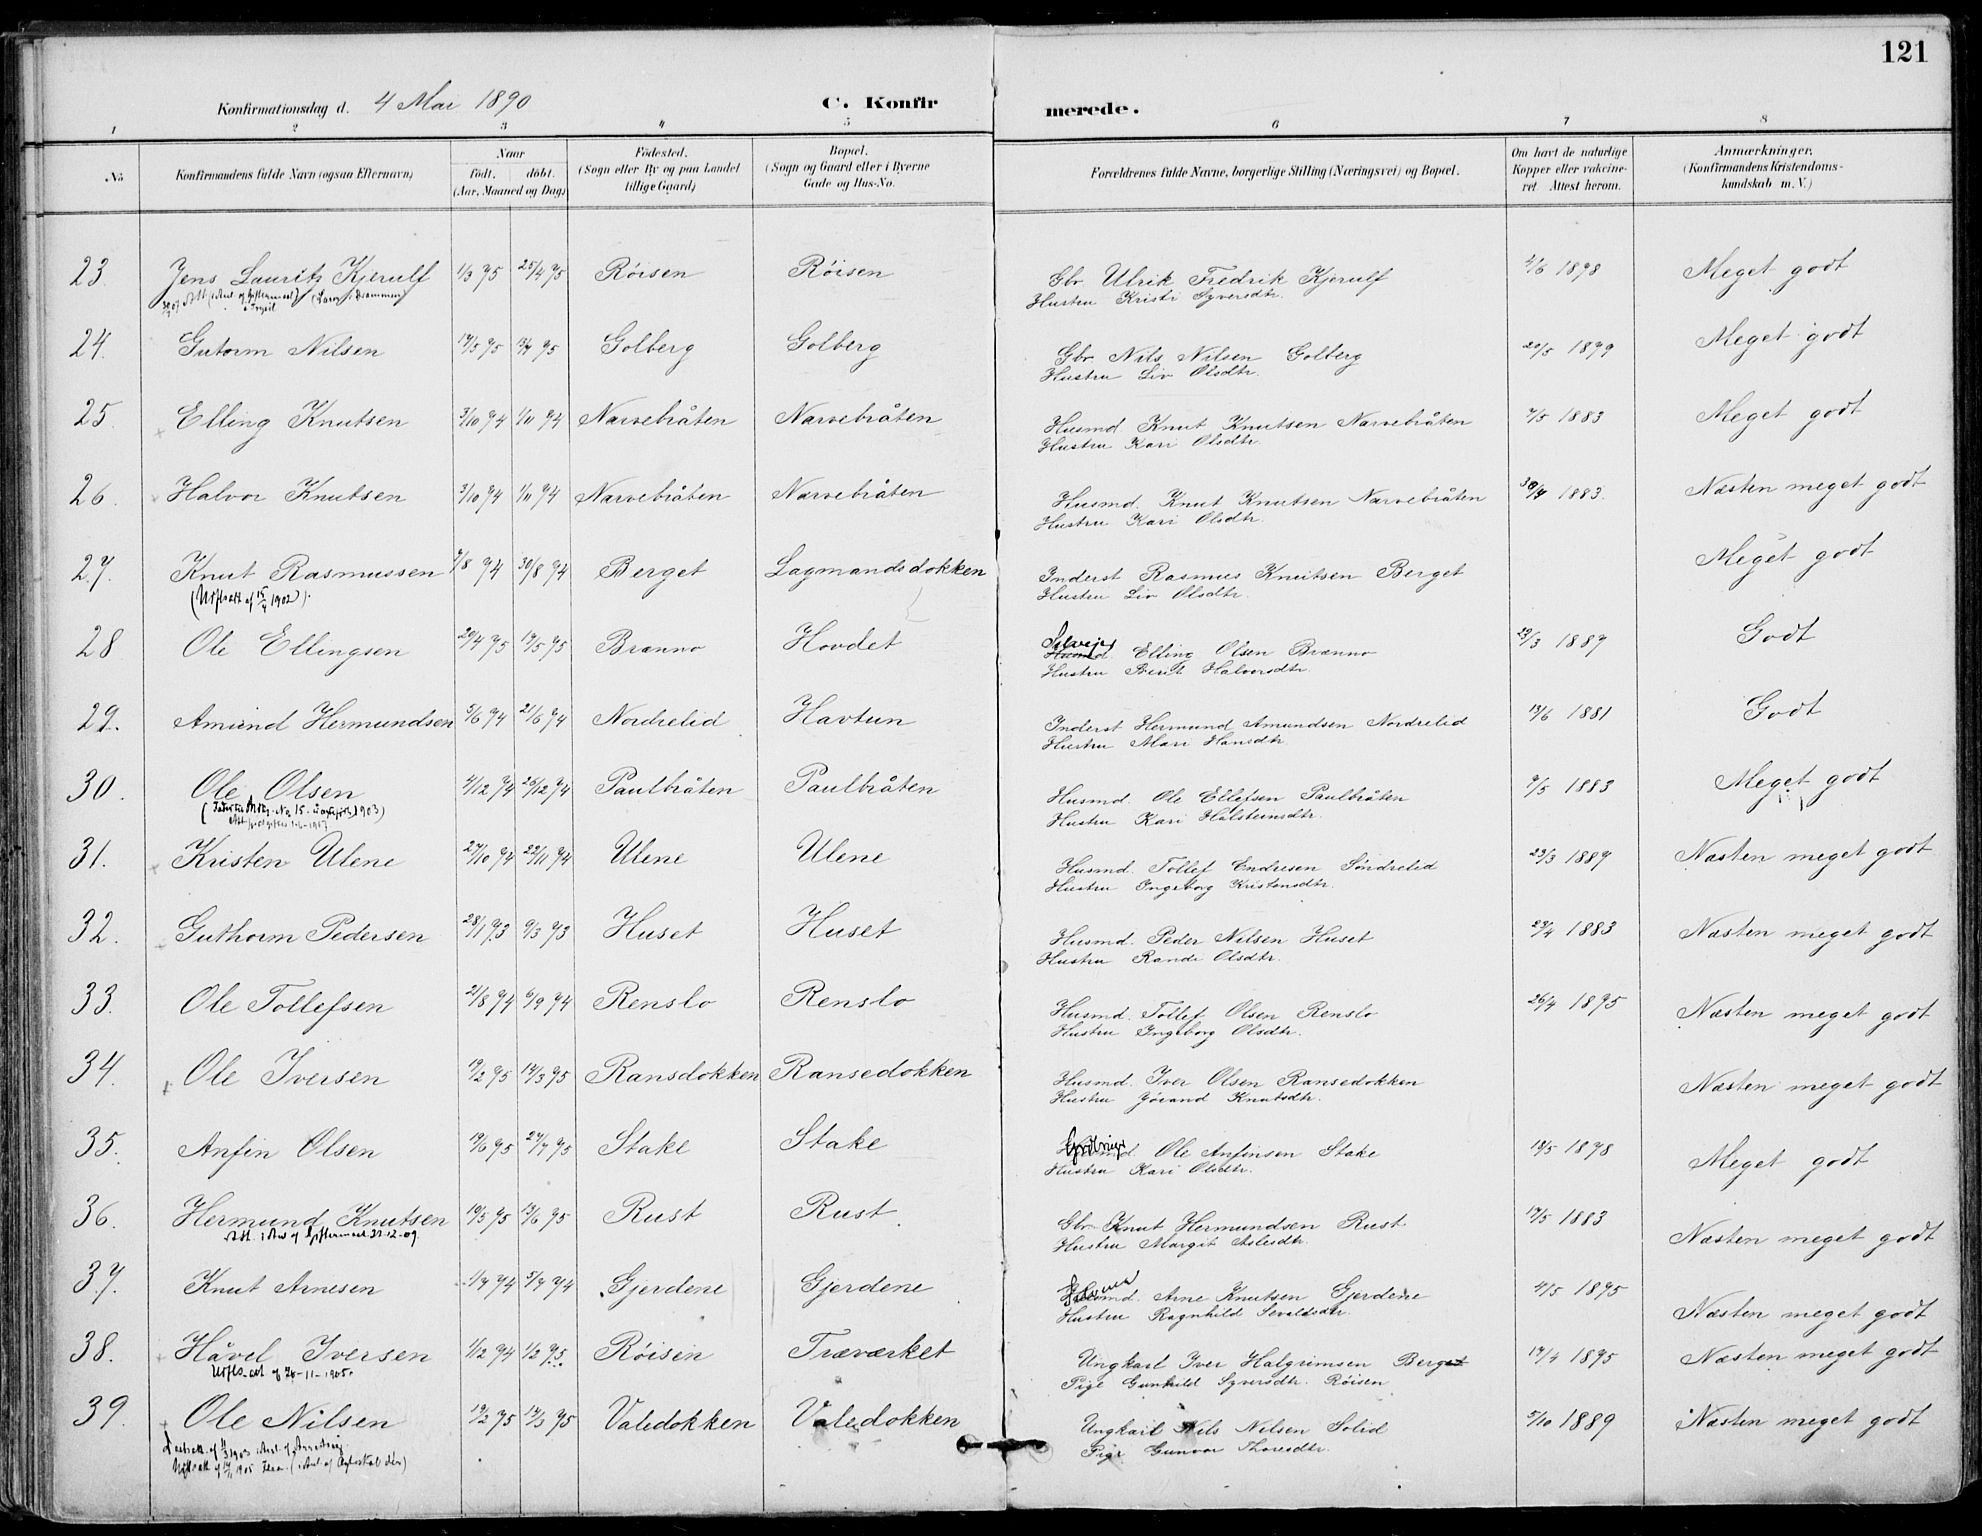 121
Konfirmationsdag d. 4 Mai 1890 C. Konfirmerede.
1 2 3 4 5 6 7 8
No. Konfirmandens fulde Navn (ogsaa Efternavn) Naar født. døbt. (Aar, Maaned og Dag) Fødested. (Sogn eller By og paa Landet tillige Gaard) Bopæl. (Sogn og Gaard eller i Byerne Gade og Hus-No. Forældrenes fulde Navne, borgerlige Stilling (Næringsvei) og Bopæl. Om havt de naturlige Kopper eller vakcineret. Attest herom. Anmærkninger. (Konfirmandens Kristendomskundskab m. V.)
23. Jens Laurits Kjerulf 1/3 75 25/4 75 Röisen Röisen Gbr Ulrik Fredrik Kjerulf 4/6 1878 Meget godt
Hustru Kristi Syversdtr.
24. Gutorm Nilsen 75 75 Golberg Golberg Gbr Nils Nilsen Golberg 20/5 1879 Meget godt
Hustru Liv Olsdtr.
25. Elling Knutsen 3/10 74 1/11 74 Narvebråten Narvebråten Husmd Knut Knutsen Narvebråten 7/5 1883 Meget godt
Hustru Kari Olsdtr.
26. Halvor Knutsen 3/10 74 1/11 74 Narvebråten Narvebråten Husmd. Knut Knutsen Narvebråten 1883. Næsten meget godt
Hustru Kari Olsdtr.
27. Knut Rasmussen 7/8 74 30/8 74 Berget Lagmandsdokken Inderst Rasmus Knutsen Berget Meget godt
(Utflatt af 15/4 1902). Hustru Liv Olsdtr.
28 Ole Ellingsen 20/4 75 75 Brænno Hovdet Selveier Husmd. Elling Olsen Brænno 23/3 1887 Godt
Hustru Berit Halvorsdtr.
29. Amund Hermundsen 5/6 74 21/6 74 Nordrelid Havtun Inderst Hermund Amundsen Nordrelid 13/6 1881 Godt
Hustru Mari Hansdtr.
30. Ole Olsen 4/12 74 26/12 74 Paulbråten Paulbråten Husmd. Ole Ellefsen Paulbråten 9/5 1883 Meget godt
Hustru Kari Halsteinsdtr.
31. Kristen Ulene 27/10 74 22/11 74 Ulene Ulene Husmd. Tollef Endresen Söndrelid 23/3 1887 Næsten meget godt
Hustru Ingeborg Kristensdtr.
32. Guthorm Pedersen 28/1 73 9/3 73 Huset Huset Husmd. Peder Nilsen Huset 23/4 1883 Næsten meget godt
Hustru Randi Olsdtr.
33. Ole Tollefsen 21/8 74 6/9 74 Renslo Renslo Husmd. Tollef Olsen Renslo 26/4 1875 Næsten meget godt
Hustru Ingeborg Olsdtr.
34. Ole Iversen 75 75 Ransdokken Ransedokken Husmd. Iver Olsen Ransedokken Næsten meget godt
Hustru Jörand Knutsdtr.
35. Anfin Olsen 19/6 75 27/7 75 Stake Stake Ole Anfinsen Stake 1878 Meget godt
Hustru Kari Olsdtr.
36. Hermund Knutsen 75 13/6 75 Rust Rust Gbr Knut Hermundsen Rust 1883 Næsten meget godt
Att. i Anl. af Giftermaal 31-12-09. Hustru Margit Aslesdtr.
37. Knut Arnesen 1/7 74 5/7 74 Gjerdene Gjerdene Husmd. Arne Knutsen Gjerdene 4/5 1875 Næsten meget godt
Hustru Ragnhild Sevaldsdtr.
38. Håvel Iversen 1/12 74 1/2 75 Röisen Træværket Ungkarl Iver Halgrimsen Berget 1875 Næsten meget godt
Pige Gunhild Syversdtr. Röisen
39. Ole Nilsen 75 75 Valedokken Valedokken Ungkarl Nils Nilsen Solid 5/10 1889 Næsten meget godt
Pige Gunvor Thoresdtr.